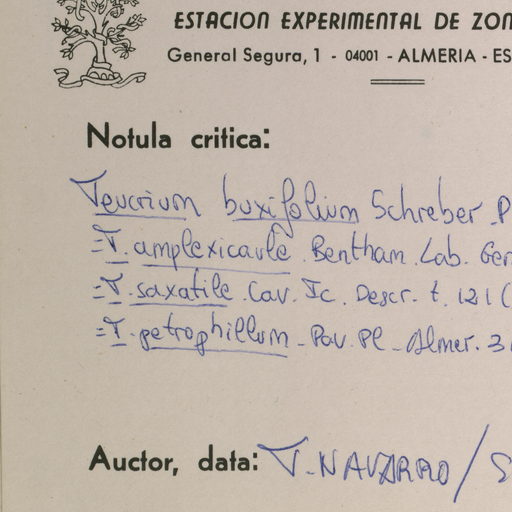 ESTACION EXPERIMENTAL DE ZON
General Segura, 1 - 04001 - ALMERIA - ES
Notula critica:
Teucrium buxifolium Schreber. P
=T. amplexicaule. Bentham. Lab. Gen
=T. saxatile. Cav. Ic. Descr. t. 121 (
=T. petrophillum - Pau. Pl - Almer. 3
Auctor, data: T. NAVARRO / S